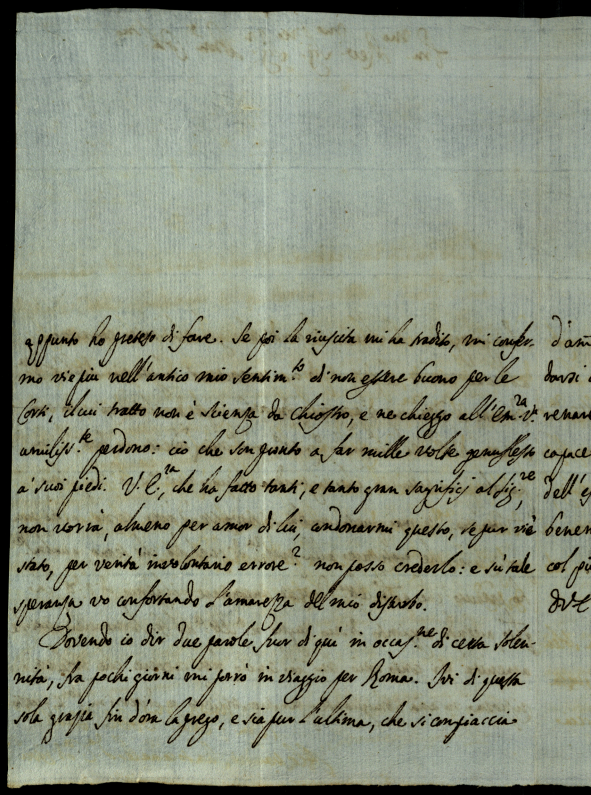 appunto ho preteso di fare. Se poi la riuscita mi ha tradito, mi confer-
mo vie più nell'antico mio sentim.to di non essere buono per le
Corti, il cui tratto non è scienza da Chiostro, e ne chieggo all'Em.za V.a
umiliss.te perdono: ciò che son pronto a far mille volte genuflesso
a' suoi piedi. V. E.za, che ha fatto tanti, e tanto gran sagrifizj al Sig.re,
non vorrà, almeno per amor di lui, condonarmi questo, se pur v'è
stato, per verità involontario errore? non posso crederlo: e su tale
speranza vo confortando l'amarezza del mio disturbo.
Dovendo io dir due parole fuor di quì in occas.ne di certa solen-
nità, fra pochi giorni mi porrò in viaggio per Roma. Ivi di questa
sola grazia fin d'ora la prego, e sia pur l'ultima, che si compiaccia
d'am
darsi
renar
capace
dell'es
benen
col pi